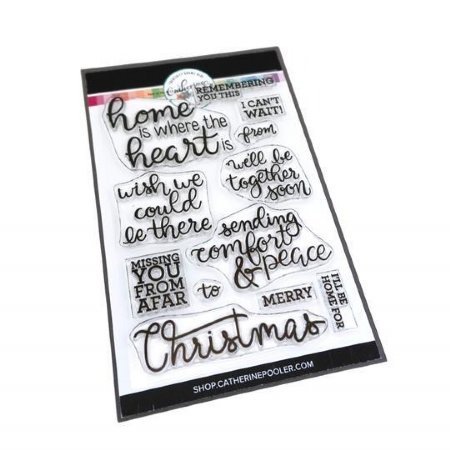 Catherine
REMEMBERING
YOU THIS
home
is where the
heart is
I CAN'T
WAIT!
from
wish we
could
be there
we'll be
together
soon
sending
comfort
& peace
MISSING
YOU FROM
AFAR
to
MERRY
I'LL BE
HOME FOR
Christmas
SHOP.CATHERINEPOOLER.COM